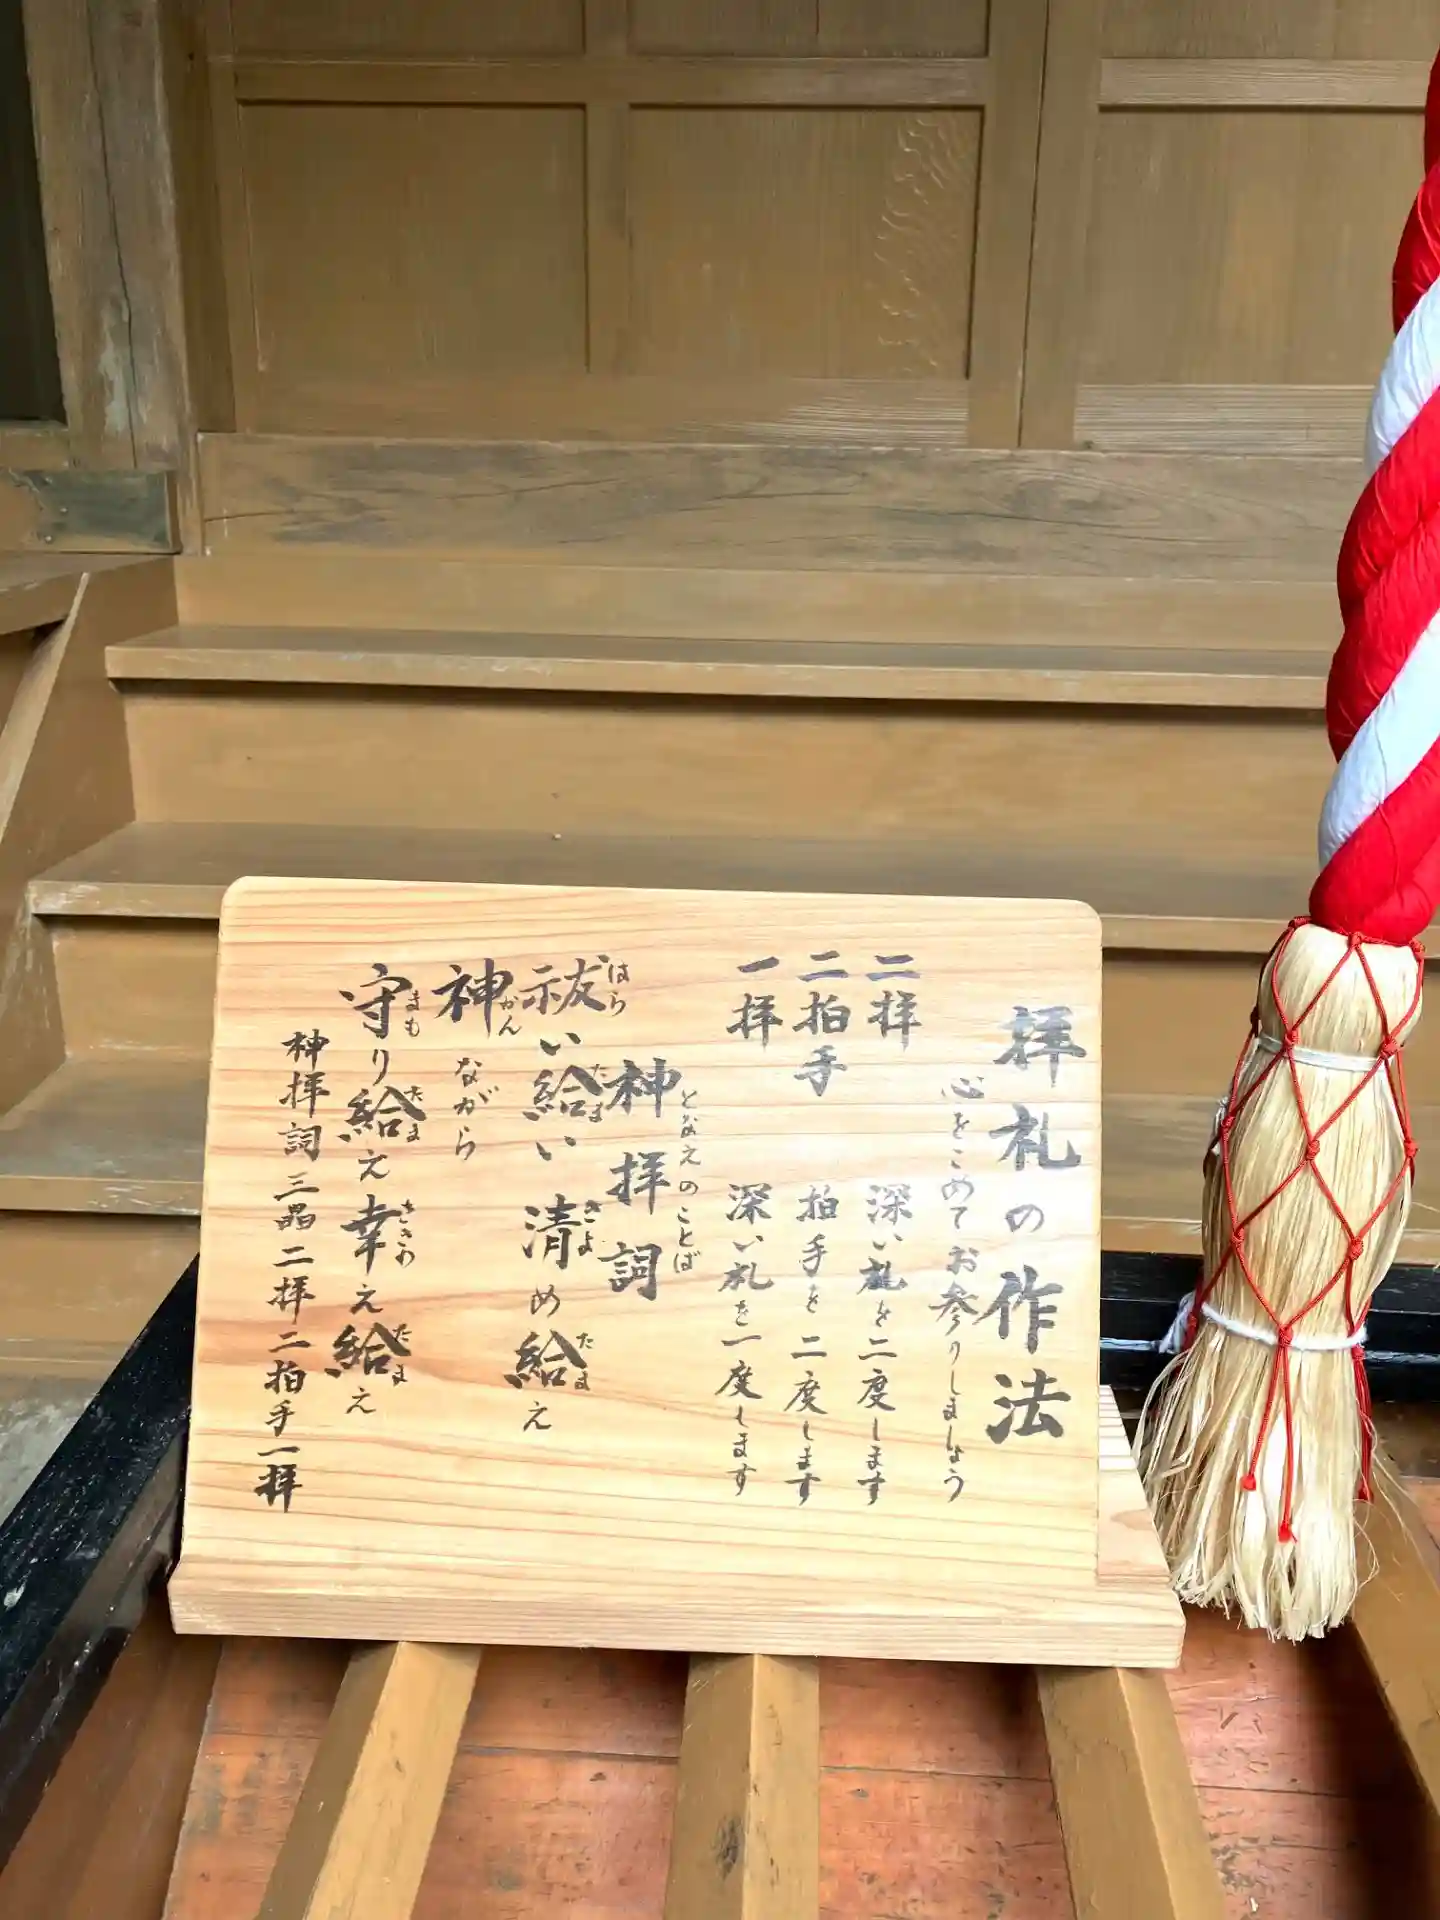 拝礼の作法
心をこめてお参りしましょう
二拝 深い礼を二度します
二拍手 拍手を二度します
一拝 深い礼を一度します
となえのことば
神拝詞
祓い給い 清め給え
はら たま きよ たま
神ながら
かん
守り給え幸え給え
まも たま さきわ たま
神拝詞三唱二拝二拍手一拝